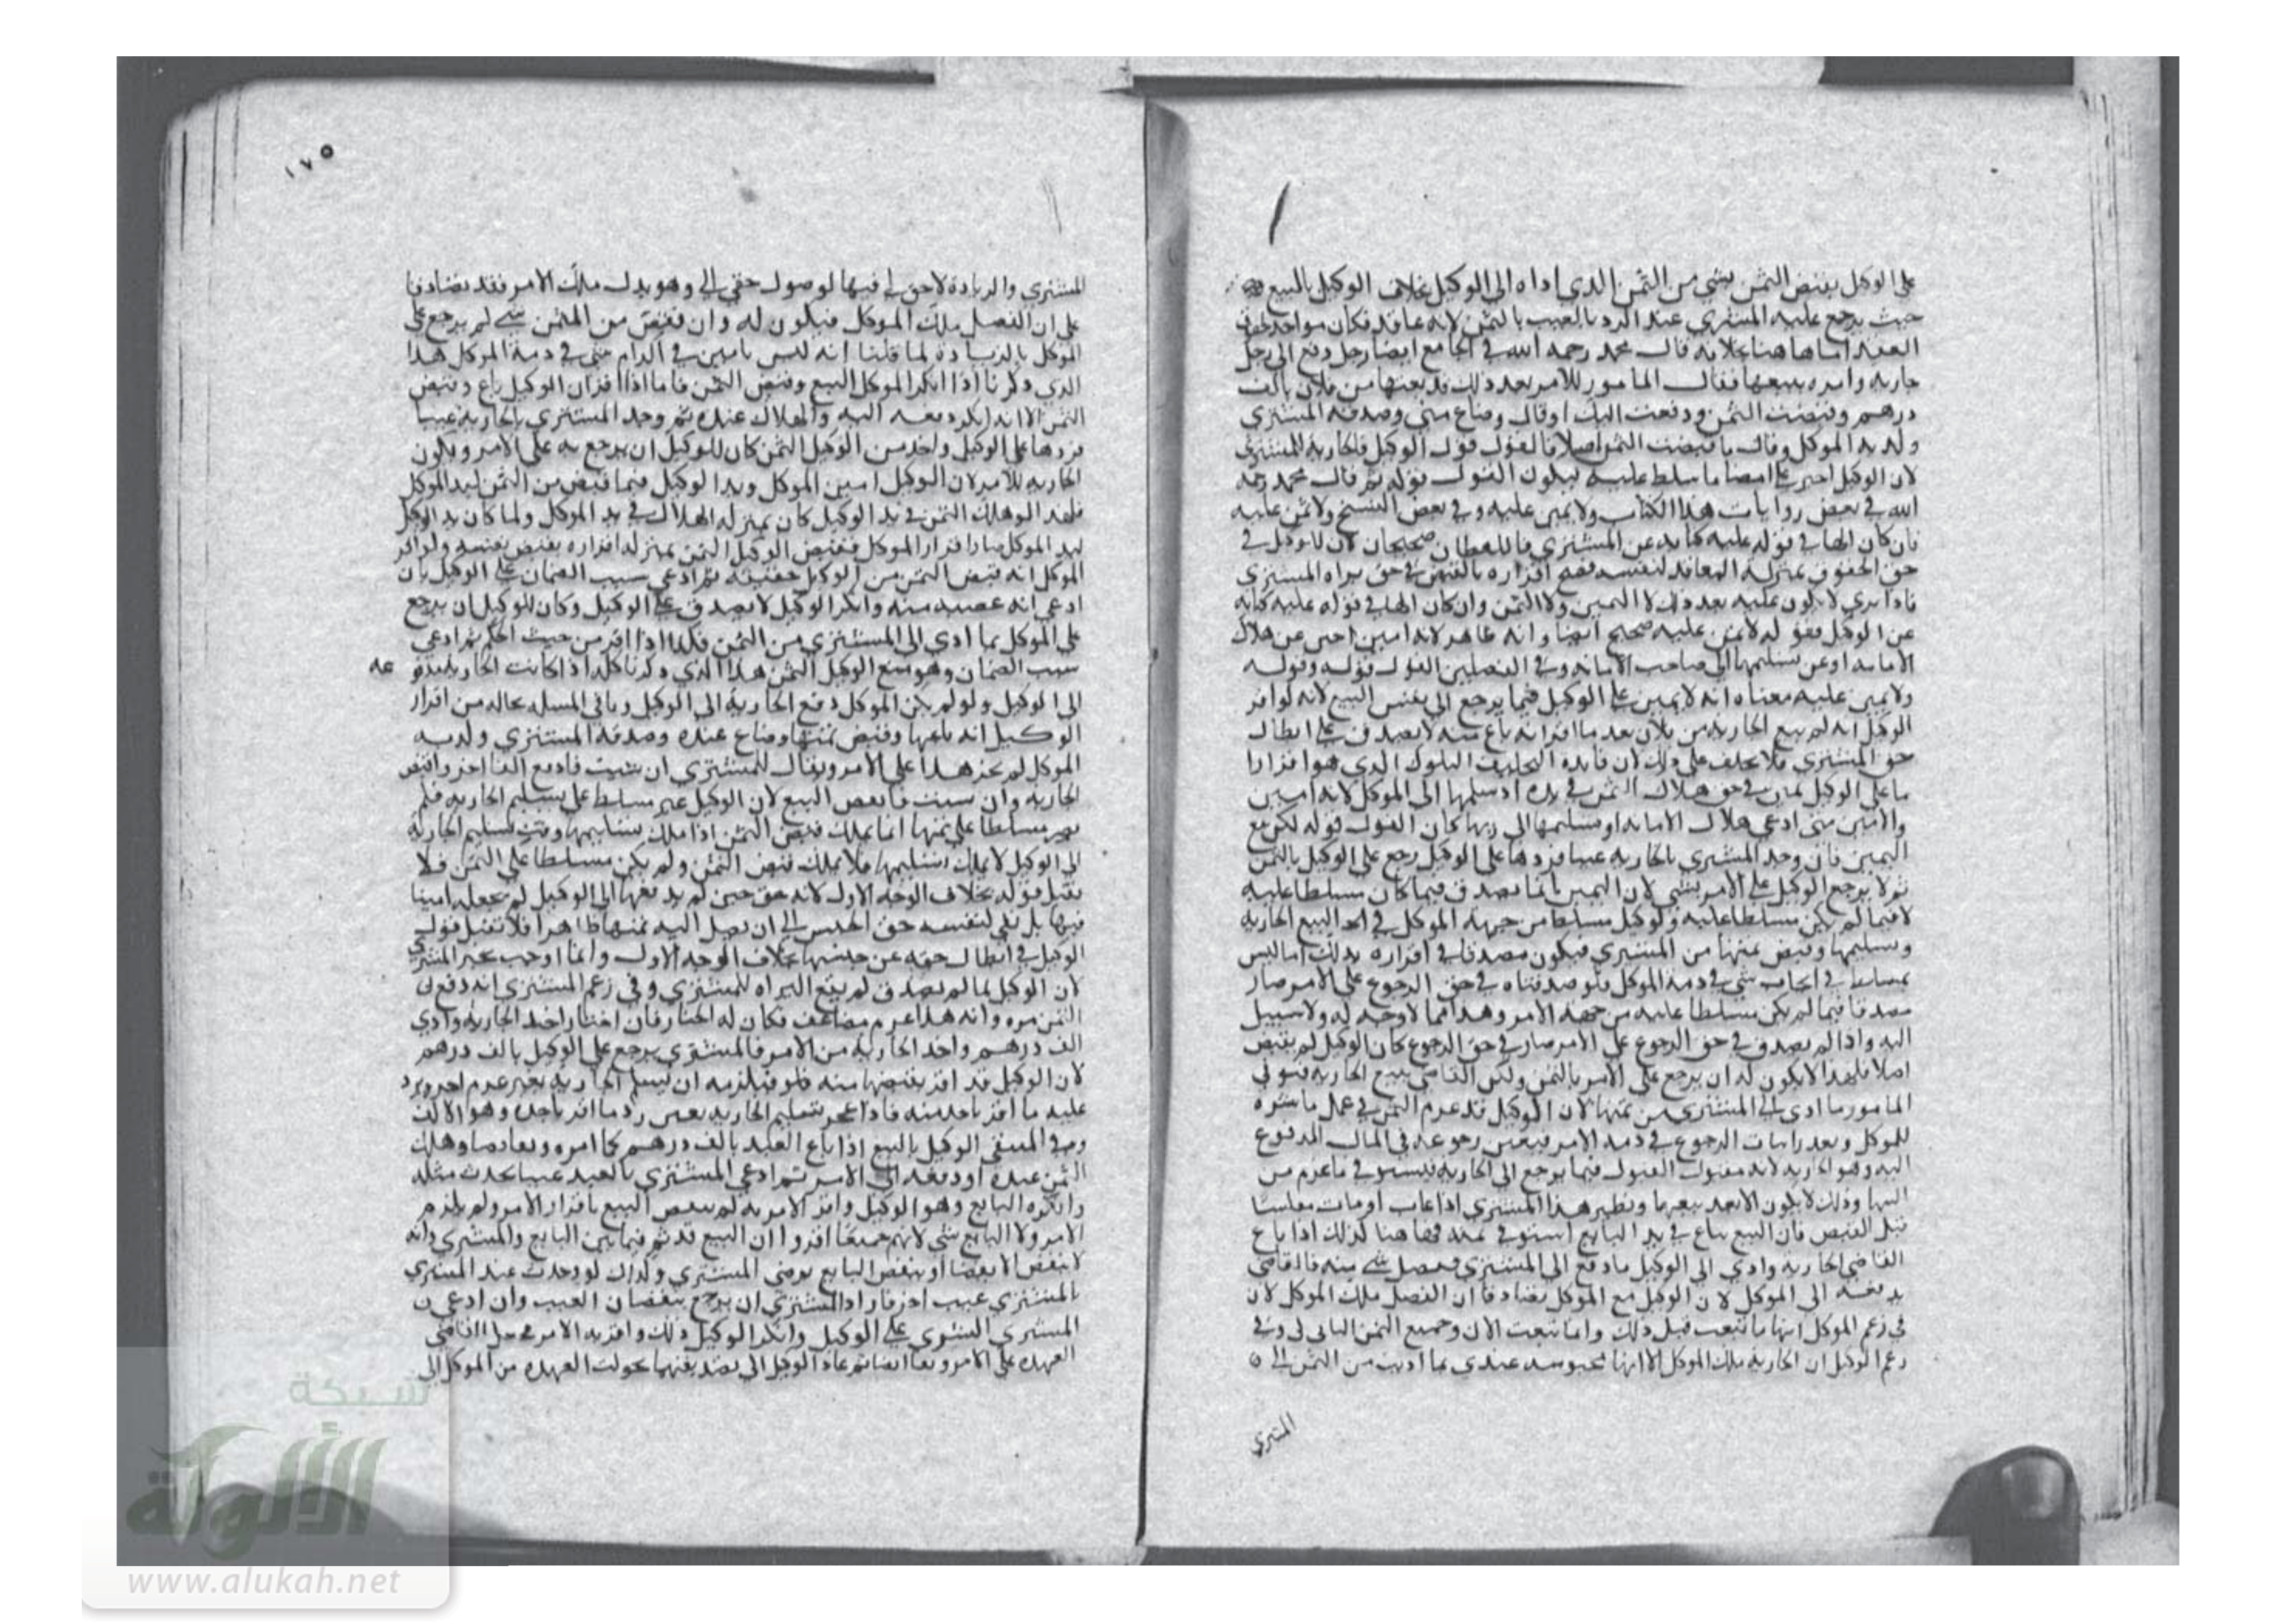 على الوكيل بقبض الثمن بشي من الثمن الذي اداه الى الوكيل بخلاف الوكيل بالبيع
حيث يرجع عليه المشتري عند الرد بالعيب بالثمن لانه عاقد فكان مواخذ بحقوق
العقد اما هاهنا بخلافه قال محمد رحمه الله في الجامع ايضا رجل دفع الى رجل
جاريه وامره ببيعها فقال المامور للامر بعد ذلك قد بعتها من فلان بالف
درهم وقبضت الثمن ودفعت اليك اوقال وضاع مني وصدقه المشتري
وكذبه الموكل وقال ما قبضت الثمن اصلا فالقول قول الوكيل والجاريه للمشتري
لان الوكيل اخبر عن امضا ما سلط عليه فيكون القول قوله ثم قال محمد رحمه
الله في بعض روايات هذا الكتاب ولا يمين عليه وفي بعض النسخ ولا ثمن عليه
فان كان الها في قوله عليه كنايه عن المشتري فاللفظان صحيحان لان للوكيل في
حق الحقوق بمنزلة العاقد لنفسه فصح اقراره بالقبض في حق براه المشتري
فاذا بري لا يكون عليه بعد ذلك لا اليمين ولا الثمن وان كان الها في قوله عليه كنايه
عن الوكيل فقوله لا ثمن عليه صحيح ايضا وانه ظاهر لانه امين اخبر عن هلاك
الامانه او عن تسليمها الى صاحب الامانه وفي الفصلين القول قوله وقوله
ولا يمين عليه معناه انه لا يمين على الوكيل فيما يرجع الى نفس البيع لانه لو اقر
الوكيل انه لم يبع الجاريه من فلان بعد ما اقر انه باع منه لا يصدق على ابطال
حق المشتري فلا يحلف على ذلك لان فايدة التحليف النكول الذي هو اقرار
ما على الوكيل يمين في حق هلاك الثمن في يده او تسليمها الى الموكل لانه امين
والامين متى ادعى هلاك الامانه او تسليمها الى ربها كان القول قوله لكن مع
اليمين فان وجد المشتري بالجاريه عيبا فردها على الوكيل رجع على الوكيل بالثمن
ثم لا يرجع الوكيل على الامر بشي لان اليمين انما يصدق فيما كان مسلطا عليه
لا فيما لم يكن مسلطا عليه والوكيل مسلط من جهة الموكل في البيع الجاريه
وتسليمها وقبض ثمنها من المشتري فيكون مصدقا في اقراره بذلك اما ليس
بمسلط في ايجاب شي في ذمة الموكل فلو صدقناه في حق الرجوع على الامر صار
مصدقا فيما لم يكن مسلطا عليه من جهة الامر وهذا مما لا وجه له ولا سبيل
اليه واذا لم يصدق في حق الرجوع على الامر صار في حق الرجوع كان الوكيل لم يقبض
اصلا فلهذا لا يكون له ان يرجع على الامر بالثمن ولكن القاضي يبيع الجاريه فيوفي
المامور ما ادى الى المشتري من ثمنها لان الوكيل قد غرم الثمن في عمل باشره
للموكل وتعذر اثبات الرجوع في ذمة الامر فيتعين رجوعه في المال المدفوع
اليه وهو الجاريه لانه مقبول القول فيما يرجع الى الجاريه فيستوفي ما غرم من
ثمنها وذلك لا يكون الا بعد بيعها ونظير هذا المشتري اذا غاب او مات مفلسا
قبل القبض فان المبيع يباع في يد البايع استوفي ثمنه فهاهنا كذلك اذا باع
القاضي الجاريه وادى الى الوكيل ما دفع الى المشتري وفضل شي منه فالقاضي
يدفعه الى الموكل لان الوكيل مع الموكل تصادقا ان الفضل ملك الموكل لان
في زعم الموكل انها ما بيعت قبل ذلك وانما بيعت الان وجميع الثمن الباقي لي وفي
زعم الوكيل ان الجاريه ملك الموكل الا انها محبوسه عندي بما اديت من الثمن الى
المشتري
١٧٥
المشتري والزيادة لا حق لي فيها لوصول حقي الي وهو بدل ملك الامر فقد تصادقا
على ان الفضل ملك الموكل فيكون له وان نقص من الثمن شي لم يرجع على
الموكل بالزيادة لما قلنا انه ليس بامين في الزام شي في ذمة الموكل هذا
الذي ذكرنا اذا انكر الموكل البيع وقبض الثمن فاما اذا اقر ان الوكيل باع وقبض
الثمن الا انه انكر دفعه اليه والهلاك عنده ثم وجد المشتري بالجاريه عيبا
فردها على الوكيل واخذ من الوكيل الثمن كان للوكيل ان يرجع به على الامر ويكون
الجاريه للامر لان الوكيل امين الموكل ويد الوكيل فيما قبض من الثمن ليد الموكل
فلهذا لو هلك الثمن في يد الوكيل كان بمنزله الهلاك في يد الموكل ولما كان يد الوكيل
ليد الموكل صار اقرار الموكل بقبض الوكيل الثمن بمنزلة اقراره بقبض نفسه ولو اقر
الموكل انه قبض الثمن من الوكيل حقيقة ثم ادعى سبب الضمان على الوكيل بان
ادعى انه غصبه منه وانكر الوكيل لا يصدق على الوكيل وكان للوكيل ان يرجع
على الموكل بما ادى الى المشتري من الثمن فكذا اذا اقر من حيث الحكم ثم ادعى
سبب الضمان وهو منع الوكيل الثمن هذا الذي ذكرنا كله اذا كانت الجاريه مدفوعه
الى الوكيل ولو لم يكن الموكل دفع الجارية الى الوكيل وباقي المسله بحاله من اقرار
الوكيل انه باعها وقبض ثمنها وضاع عنده وصدقه المشتري وكذبه
الموكل لم يجز هذا على الامر ويقال للمشتري ان شيت فادفع الفا اخر واقبض
الجاريه وان شيت فانقض البيع لان الوكيل غير مسلط على تسليم الجاريه فلم
يصر مسلطا على ثمنها انما يملك قبض الثمن اذا ملك تسليمها وقبل تسليم الجاريه
الى الوكيل لا يملك تسليمها فلا يملك قبض الثمن ولم يكن مسلطا على الثمن فلا
يقبل قوله بخلاف الوجه الاول لانه حين لم يدفعها الى الوكيل لم يجعله امينا
فيها بل بقى لنفسه حق الحبس الى ان يصل اليه ثمنها ظاهرا فلا تقبل قول
الوكيل في ابطال حقه عن حبسها بخلاف الوجه الاول وانما اوجب تخير المشتري
لان الوكيل لما لم يصدق لم يقع البراه للمشتري وفي زعم المشتري انه دفع
الثمن مره وانه هذا غرم مضاعف فكان له الخيار فان اختار اخذ الجارية وادى
الف درهم واخذ الجارية من الامر فالمشتري يرجع على الوكيل بالف درهم
لان الوكيل قد اقر بقبضها منه فلو قبلزمه ان يسلم الجاريه بغير غرم اخر ويرد
عليه ما اقر باخذ منه فاذا عجز بتسليم الجاريه تعين رد ما اقر باخذه وهو الالف
وفي المنتقى الوكيل بالبيع اذا باع العبد بالف درهم كما امره وتقابضا وهلك
الثمن عنده او دفعه الى الامر ثم ادعى المشتري بالعبد عيبا يحدث مثله
وانكره البايع وهو الوكيل واقر الامر به لم ينقض البيع باقرار الامر ولم يلزم
الامر ولا البايع شي لانهم جميعا اقروا ان البيع قد تم فيما بين البايع والمشتري وانه
لا ينقض الا بقضا او ينقض البايع برضى المشتري وكذلك لو وجدت عند المشتري
بالمشتري عيب اخر فاراد المشتري ان يرجع بنقصان العيب وان ادعى
المشتري على الوكيل وانكر الوكيل ذلك واقر به الامر القاضي
العهده على الامر ثم عاد الوكيل الى تصديقهما تحولت العهده من الموكل الى
شبكة
الألوكة
www.alukah.net